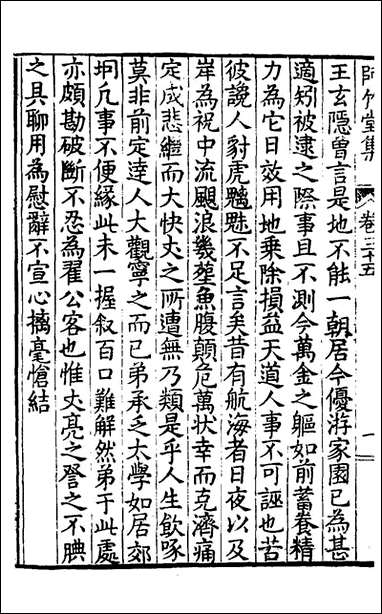 師竹堂集 卷三十五 一
王玄隱曾言是地不能一朝居今優游家園已為甚
適矧被逮之際事且不測今萬金之軀如前蓄養精
力為它日效用地乗除損益天道人事不可誣也若
彼讒人豺虎魑魅不足言矣昔有航海者日夜以及
岸為祝中流颶浪幾塟魚腹顛危萬狀幸而克濟痛
定成悲繼而大快丈之所遭無乃類是乎人生飲啄
莫非前定達人大觀寧之而已弟承乏太學如居郊
坰凢事不便緣此未一握叙百口難解然弟于此處
亦頗勘破斷不忍為翟公客也惟丈亮之詧之不腆
之具聊用為慰辭不宣心摛毫愴結